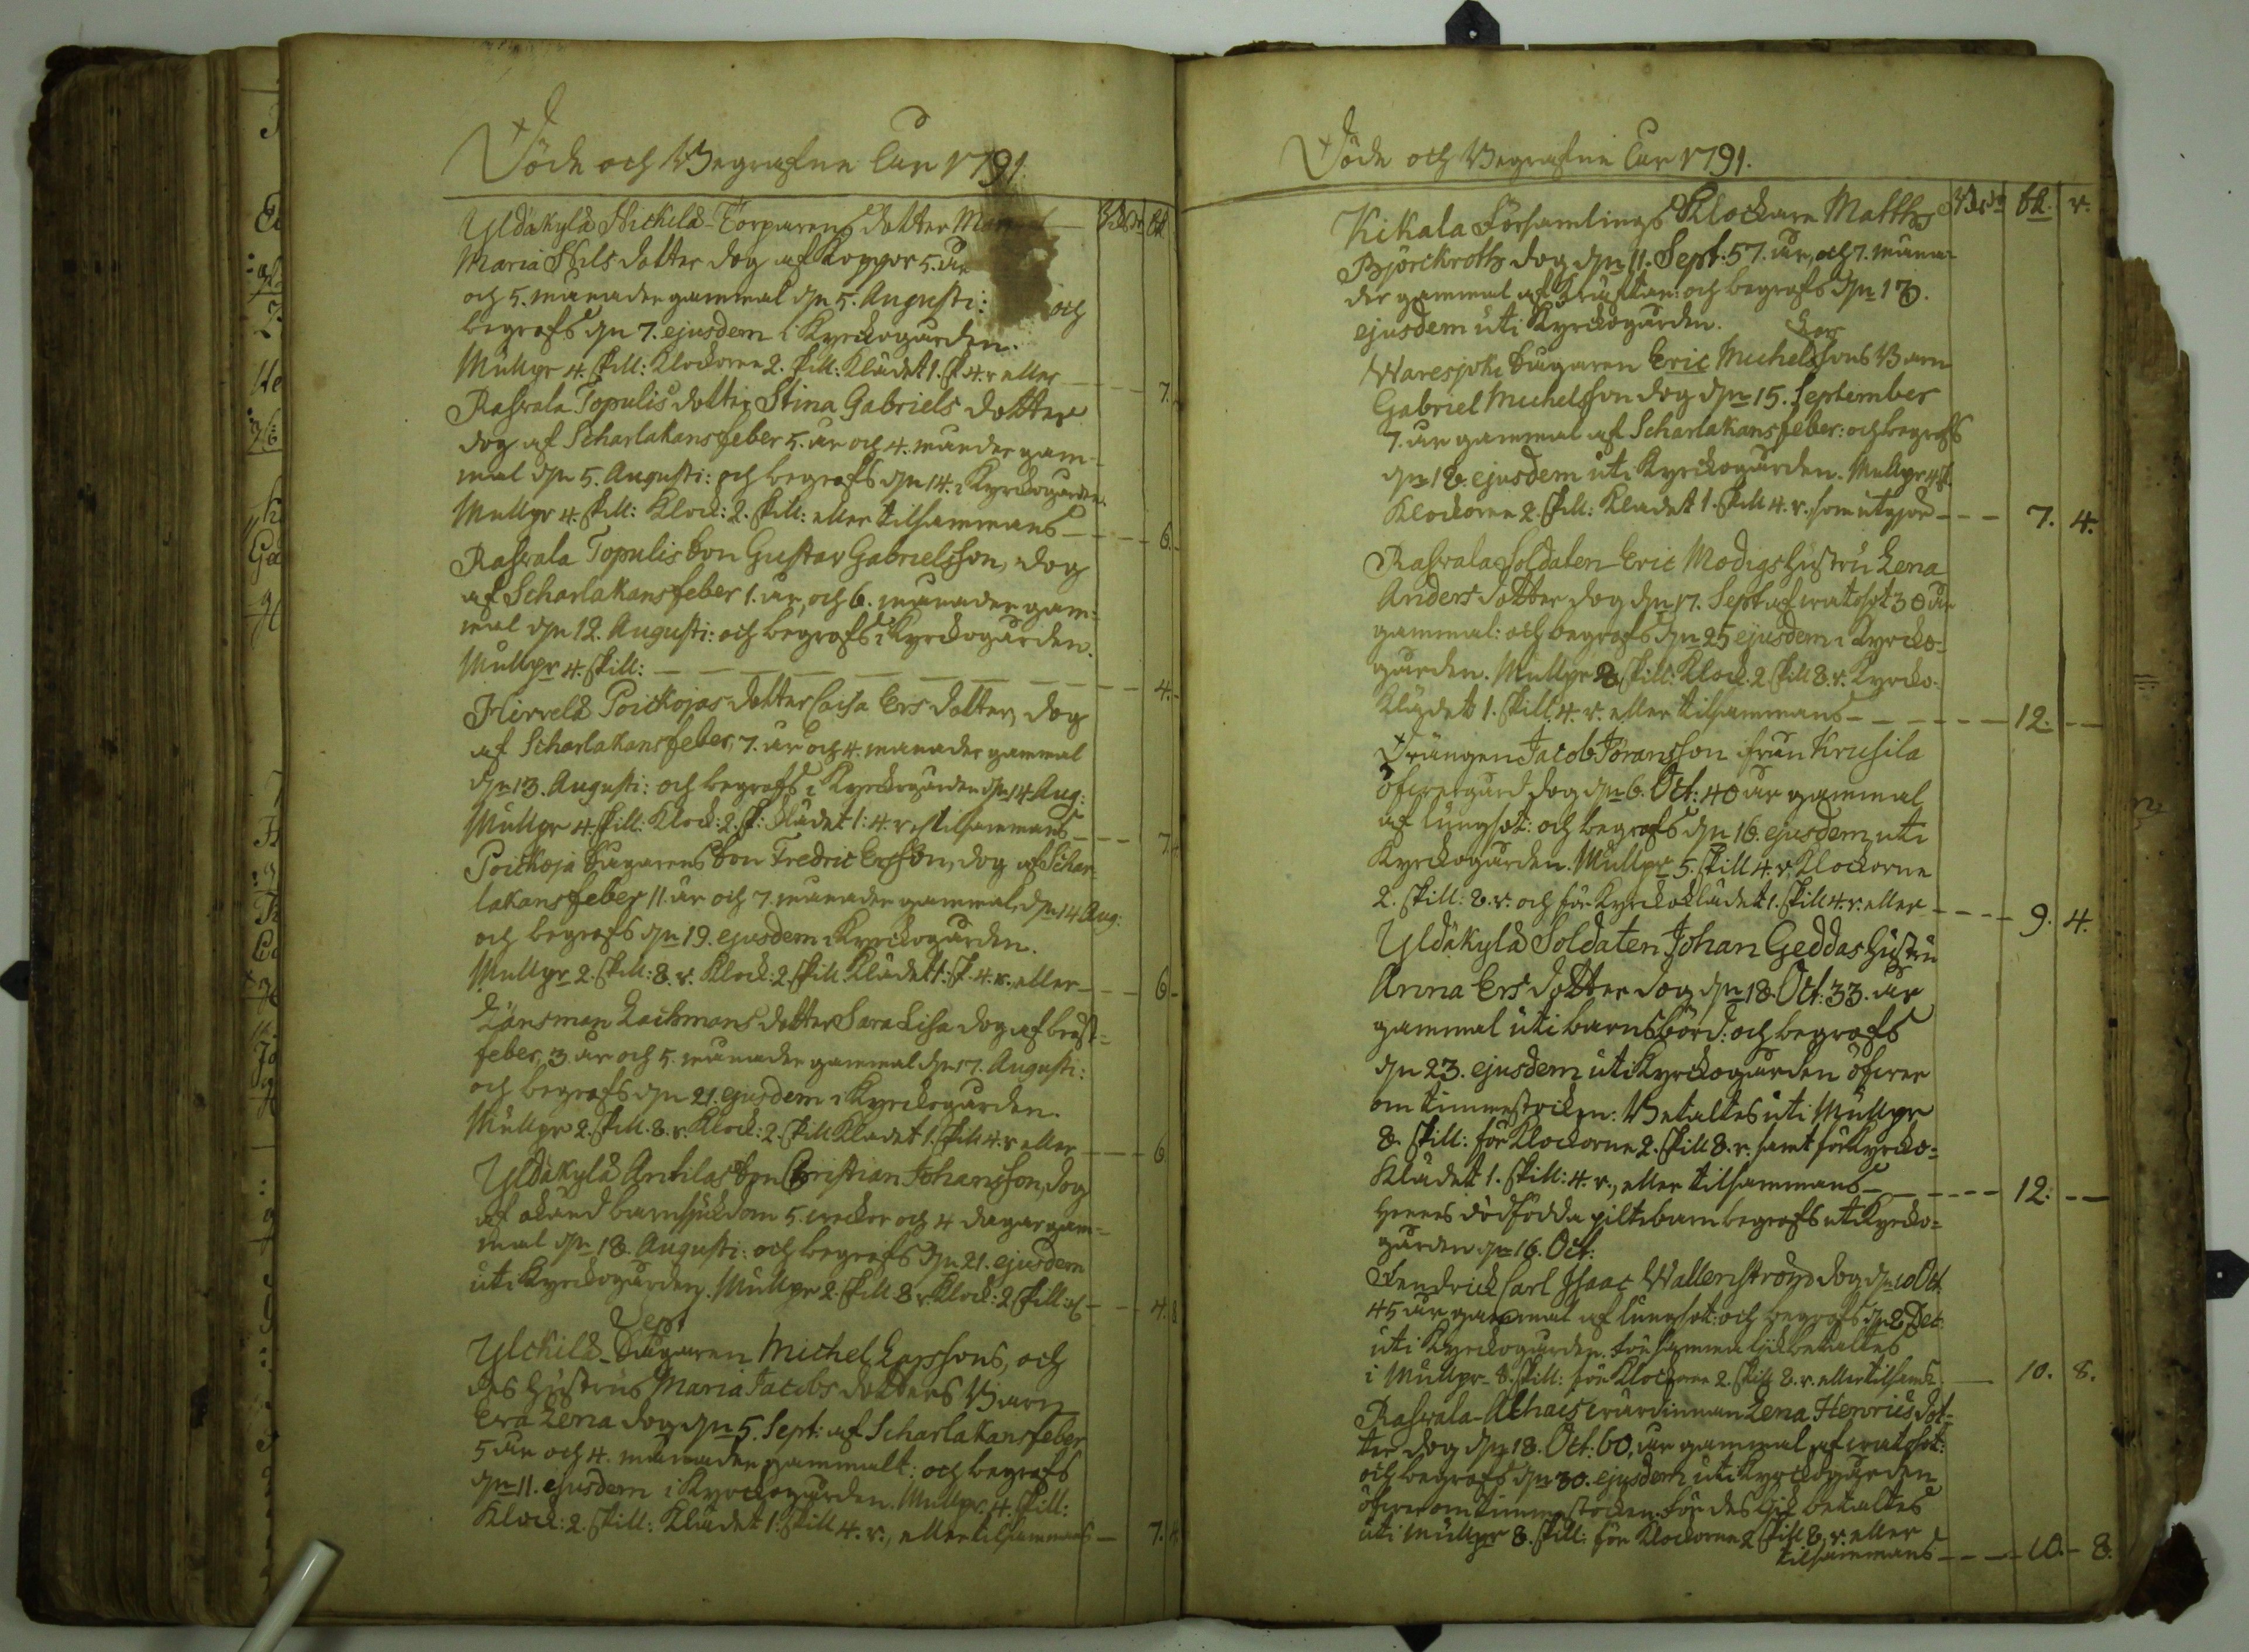 Döde och Begrafne Åhr 1791.
Rdsdr sk
Yldäkylä Nickilä Torparens dotter
Maria Nils dotter dog af Koppor 5. år
och 5. månader gammal d/n 5. Augusti: och
begrofs d/n 7. ejusdem i Kyrckogården.
Mullpr 4. skill: Klockorne 2. skill: Klädet 1. sk 4. r eller ---- 7.
Raswala Topulis dotter Stina Gabriels dotter
dog af Scharlakansfeber 5. år och 4. månader gam-
mal d/n 5. Augusti: och begrofs d/n 14. i Kyrckogården.
Mullpr 4. skill: Klock: 2. skill: eller tilsammans ---- 6.
Raswala Topulis Son Gustav Gabrielsson, dog
af Scharlakansfeber 1. år, och 6. månader gam-
mal d/n 12. Augusti: och begrofs i Kyrckogården.
Mullpr 4. skill: ---- 4.
Hirvelä Poickojas dotter Caisa Ers dotter, dog
af Scharlakansfeber, 7. år och 4. månader gammal
d/n 13. Augusti: och begrofs i Kyrckogården d/n 14 Aug:
Mullpr 4. skill: Klock: 2. sk: Klädet 1: 4. r el tilsammans --- 7
Poickoja Sågarens Son Fredric Ersson, dog af Schar-
lakansfeber 11. år och 7. månader gammal, d/n 14 Aug:
och begrofs d/n 19. ejusdem i Kyrckogården.
Mullpr 2. skill: 8. r. Klock: 2. skill Klädet 1: sk. 4. r., eller --- 6
Länsman Lachmans dotter Sara Lisa dog af bröst-
feber, 3. år och 5. månader gammal d/n 17. Augusti:
och begrofs d/n 21. ejusdem i Kyrckogården.
Mullpr 2. skill. 8. r. Klock: 2. skill Klädet 1. skill 4. r eller ---- 6
Yldäkylä Antilas Son Christian Johansson, dog
af okänd barnsjukdom 5. weckor och 4 dagar gam-
mal d/n 18. Augusti: och begrofs d/n 21. ejusdem
uti Kyrckogården. Mullpr 2. skill 8 r. Klock: 2 skill --- 4. 8
Sept
Ylckilä Sågaren Michel Larssons, och
des Hustrus Maria Jacobs dotters Barn
Eva Lena dog d/n 5. Sept: af Scharlakansfeber
5 år och 4. månader gammalt: och begrofs
d/n 11. ejusdem i Kyrckogården. Mullpr. 4. skill:
Klock: 2. skill: Klädet 1. skill 4. r., eller tilsammans — 7.
Döde och Begrafne Åhr 1791.
Rdsdr sk. r.
Kikala Församlings Klockare Matths
Björckroth dog d/n 11. Sept: 57. år, och 7. måna-
der gammal af Kräftan: och begrofs d/n 18.
ejusdem uti Kyrckogården.
Waresjoki Sågaren Eric Michelssons Barn
Gabriel Michelsson dog d/n 15. September
7. år gammal af Scharlakansfeber: och begrofs
d/n 18. ejusdem uti Kyrckogården. Mullpr 4 sk
Klockorne 2. skill: Klädet 1. skill 4. r. som utgjör --- 7. 4.
Raswala Soldaten Eric Modigs Hustru Lena
Anders dotter dog d/n 17. Sept af watusot 30 år
gammal: och begrofs d/n 25 ejusdem i Kyrcko-
gården. Mullpr 8 skill: Klock. 2 skill 8. r. Kyrcko-
Klädet 1. skill, 4. r. eller tilsammans ------ 12. --
Drängen Jacob Jöransson ifrån Krusila
öfwergård dog d/n 6. Oct: 40 år gammal
af lungsot: och begrofs d/n 16. ejusdem uti
Kyrckogården. Mullpr 5. skill 4. r. Klockorne
2. skill: 8. r. och för Kyrckoklädet 1. skill 4. r. eller ---- 9. 4.
Yldäkylä Soldaten Johan Geddas Hustru
Anna Ers dotter dog d/n 18. Oct: 33. år
gammal uti barnsbörd: och begrofs
d/n 23. ejusdem uti Kyrckogården öfwer
om timmerstocken: Betaltes uti Mullpr
8. skill: för Klockorne 2. skill 8. r. samt för Kyrcko-
Klädet 1. skill: 4. r., eller tilsammans ------ 12: --
Hennes dödfödda piltebarn begrofs uti Kyrcko-
gården d/n 16. Oct:
Fendrick Carl Isaac Wallenström dog d/n 10 Oct
45 år gammal af lungsot: och begrofs d/n 2 Dec:
uti Kyrckogården. För samma lijk betaltes
i Mullpr 8. skill: för Klockorne 2. skill 8. r. eller tilsamn: — 10. 8.
Raswala Alhais wärdinnan Lena Henrics dot-
ter dog d/n 18. Oct: 60. år gammal af watusot:
och begrofs d/n 30. ejusdem uti Kyrckogården
öfwer om timmerstocken. För des lijk betaltes
uti Mullpr 8. skill: för Klockorne 2 skill 8. r. eller
tilsammans ---- 10. - 8.